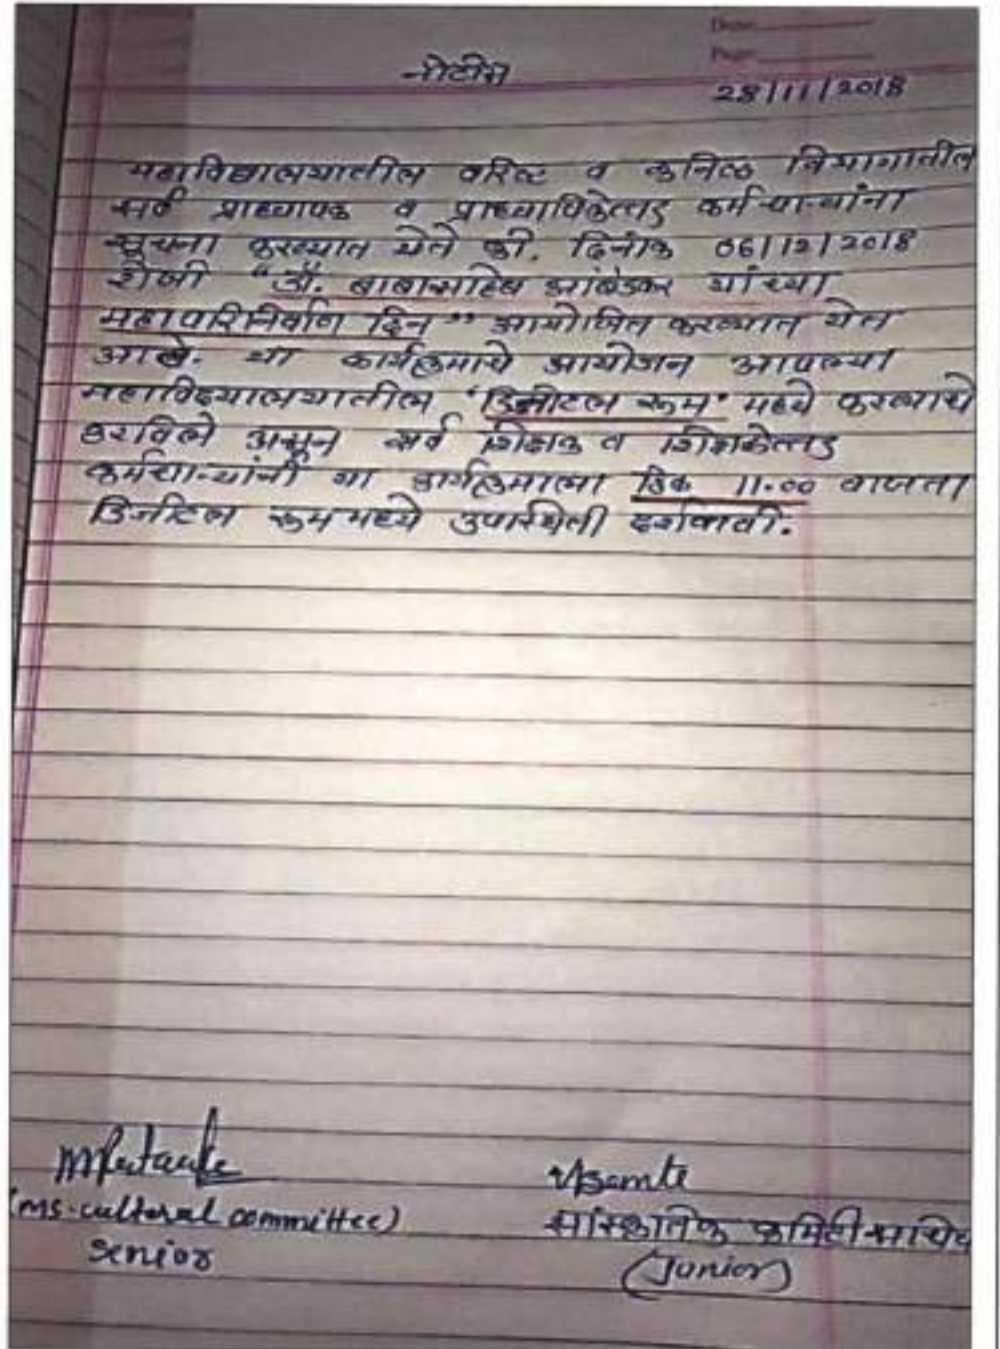 Date
Page
नोटीस
28/11/2018
महाविद्यालयातील वरिष्ठ व कनिष्ठ विभागातील
सर्व प्राध्यापक व प्राध्यापिकेत्तर कर्मचाऱ्यांना
सूचना करण्यात येते की. दिनांक 06/12/2018
रोजी "डॉ. बाबासाहेब आंबेडकर यांच्या
महापरिनिर्वाण दिन" आयोजित करण्यात येत
आहे. या कार्यक्रमाचे आयोजन आपल्या
महाविद्यालयातील 'डिजीटल रूम' मध्ये करण्याचे
ठरविले असून सर्व शिक्षक व शिक्षकेत्तर
कर्मचाऱ्यांनी या कार्यक्रमाला ठिक 11.00 वाजता
डिजीटल रूममध्ये उपस्थिती दर्शवावी.
(MS. cultural committee)
Senior
सांस्कृतिक कमिटी सचिव
(Junior)